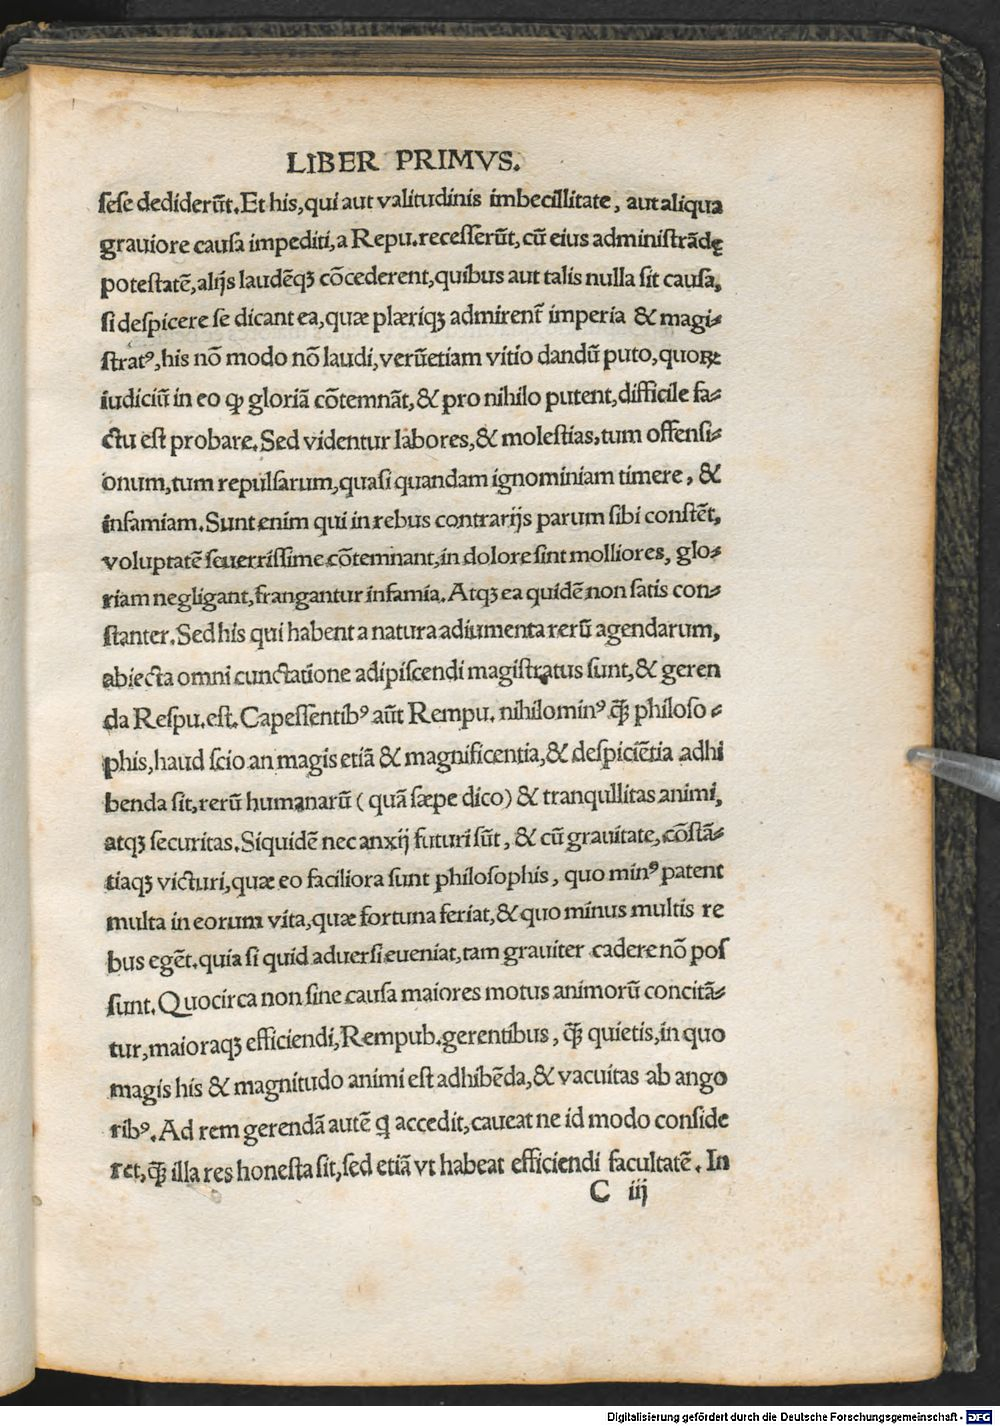 LIBER PRIMVS.
ſeſe dediderūt. Et his, qui aut valitudinis imbecillitate, aut aliqua
grauiore cauſa impediti, a Repu. receſſerūt, cū eius adminiſtrādę
poteſtatē, alijs laudēqꝫ cōcederent, quibus aut talis nulla ſit cauſa,
ſi deſpicere ſe dicant ea, quæ plæriqꝫ admirent̃ imperia & magi⸗
ſtratꝰ, his nō modo nō laudi, verūetiam vitio dandū puto, quoꝝ
iudiciū in eo ꝙ gloriā cōtemnāt, & pro nihilo putent, difficile fa⸗
ctu eſt probare. Sed videntur labores, & moleſtias, tum offenſi⸗
onum, tum repulſarum, quaſi quandam ignominiam timere, &
infamiam. Sunt enim qui in rebus contrarijs parum ſibi conſtēt,
voluptatē ſeuerriſſime cōtemnant, in dolore ſint molliores, glo⸗
riam negligant, frangantur infamia. Atqꝫ ea quidē non ſatis con⸗
ſtanter. Sed his qui habent a natura adiumenta rerū agendarum,
abiecta omni cunctatione adipiſcendi magiſtratus ſunt, & geren
da Reſpu. eſt. Capeſſentibꝰ aūt Rempu. nihilominꝰ q̄ꝫ philoſo⸗
phis, haud ſcio an magis etiā & magnificentia, & deſpiciētia adhi
benda ſit, rerū humanarū (quā ſæpe dico) & tranqullitas animi,
atqꝫ ſecuritas. Siquidē nec anxij futuri ſūt, & cū grauitate, cōſtā⸗
tiaqꝫ victuri, quæ eo faciliora ſunt philoſophis, quo minꝰ patent
multa in eorum vita, quæ fortuna feriat, & quo minus multis re
bus egēt. quia ſi quid aduerſi eueniat, tam grauiter cadere nō poſ
ſunt. Quocirca non ſine cauſa maiores motus animorū concitā⸗
tur, maioraqꝫ efficiendi, Rempub. gerentibus, q̄ꝫ quietis, in quo
magis his & magnitudo animi eſt adhibēda, & vacuitas ab ango
ribꝰ. Ad rem gerendā autē q̇ accedit, caueat ne id modo conſide
ret, q̄ꝫ illa res honeſta ſit, ſed etiā vt habeat efficiendi facultatē. In
C iij
Digitalisierung gefördert durch die Deutsche Forschungsgemeinschaft - DFG